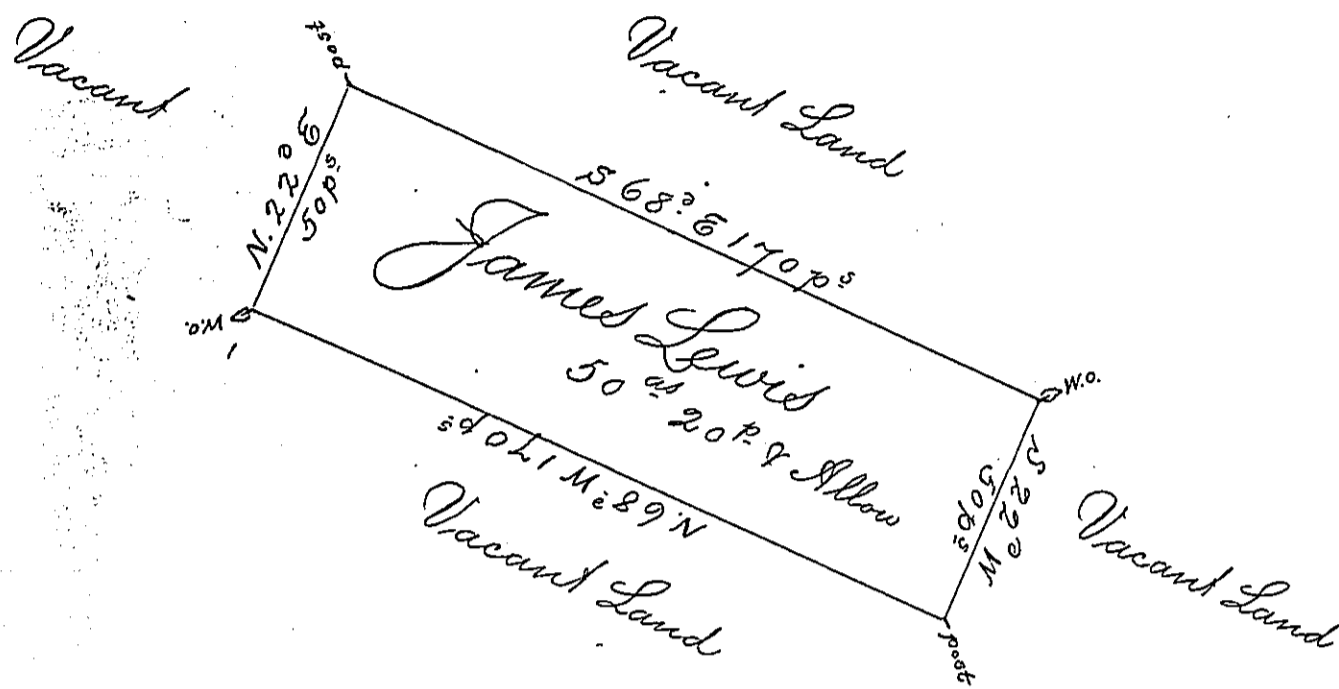 Vacant
post
Vacant Land
N. 22° E
50 pˢ
S 68° E 170 pˢ
James Lewis
50 aˢ 20 p. & Allow
W.O.
1
W.O.
S 22° W
50 pˢ
N. 68° W 170 pˢ
Vacant Land
Vacant Land
post